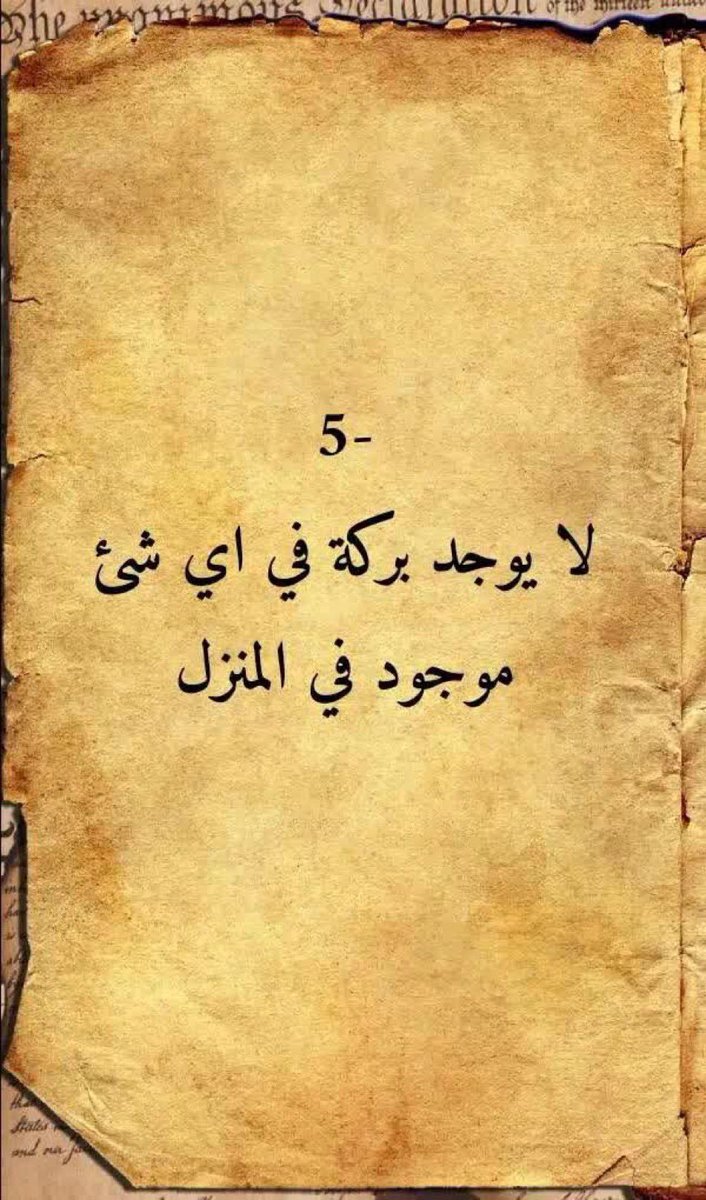 The unanimous Declaration of the thirteen united
5-
لا يوجد بركة في اي شئ
موجود في المنزل
States
and our